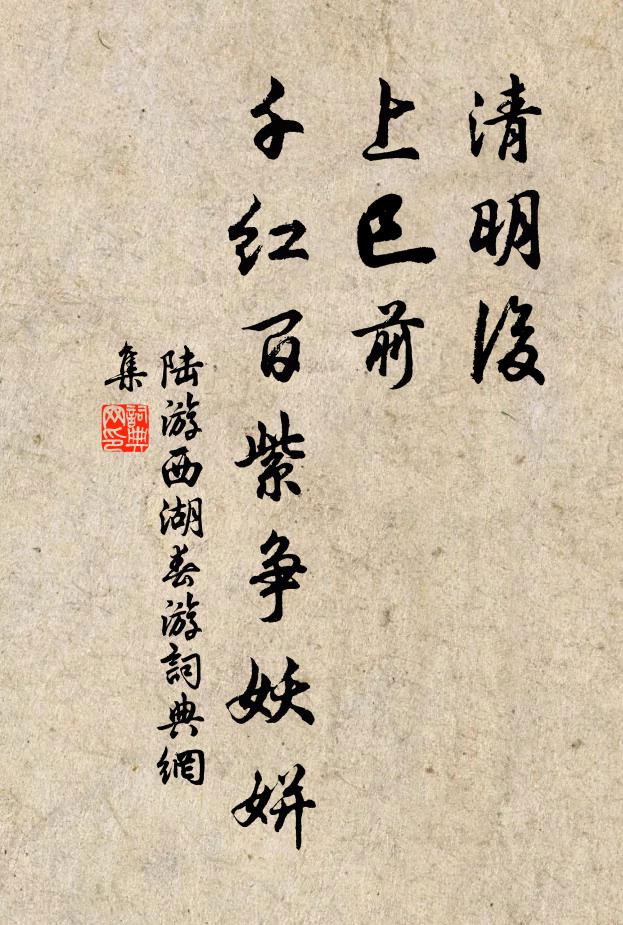 清明後
上巳前
千紅百紫争妖妍
陆游西湖春游詞典網
集
詞典网印